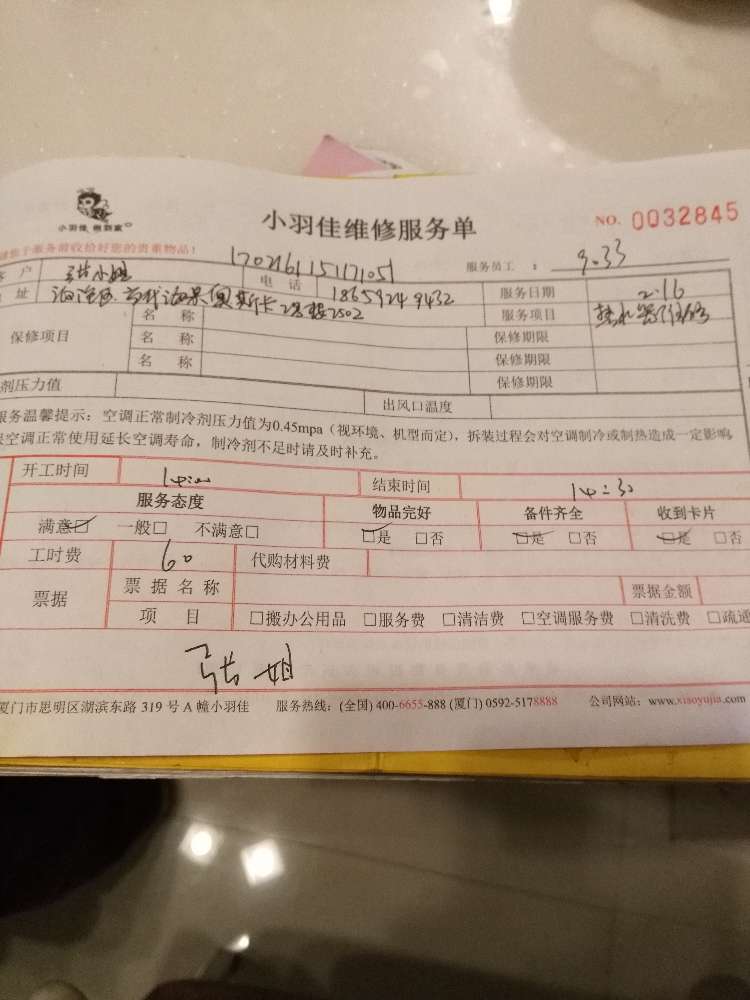 小羽佳 搬到家
小羽佳维修服务单
NO. 0032845
服务前收拾好您的贵重物品!
170216115117051
服务员工 : 9033
户 张小姐 电话 18659249432 服务日期 2.16
址 2号楼2502 服务项目 热水器维修
保修项目 名称 保修期限
名称 保修期限
保修期限
剂压力值 出风口温度
服务温馨提示:空调正常制冷剂压力值为0.45mpa(视环境、机型而定),拆装过程会对空调制冷或制热造成一定影响
空调正常使用延长空调寿命,制冷剂不足时请及时补充。
开工时间 14:00 结束时间 14:30
服务态度 物品完好 备件齐全 收到卡片
满意☑ 一般□ 不满意□ ☑是 □否 ☑是 □否 ☑是 □否
工时费 60 代购材料费
票据 票据名称 票据金额
项目 □搬办公用品 □服务费 □清洁费 □空调服务费 □清洗费 □疏通
张姐
厦门市思明区湖滨东路 319 号 A 幢小羽佳 服务热线:(全国) 400-6655-888 (厦门) 0592-5178888 公司网站:www.xiaoyujia.com